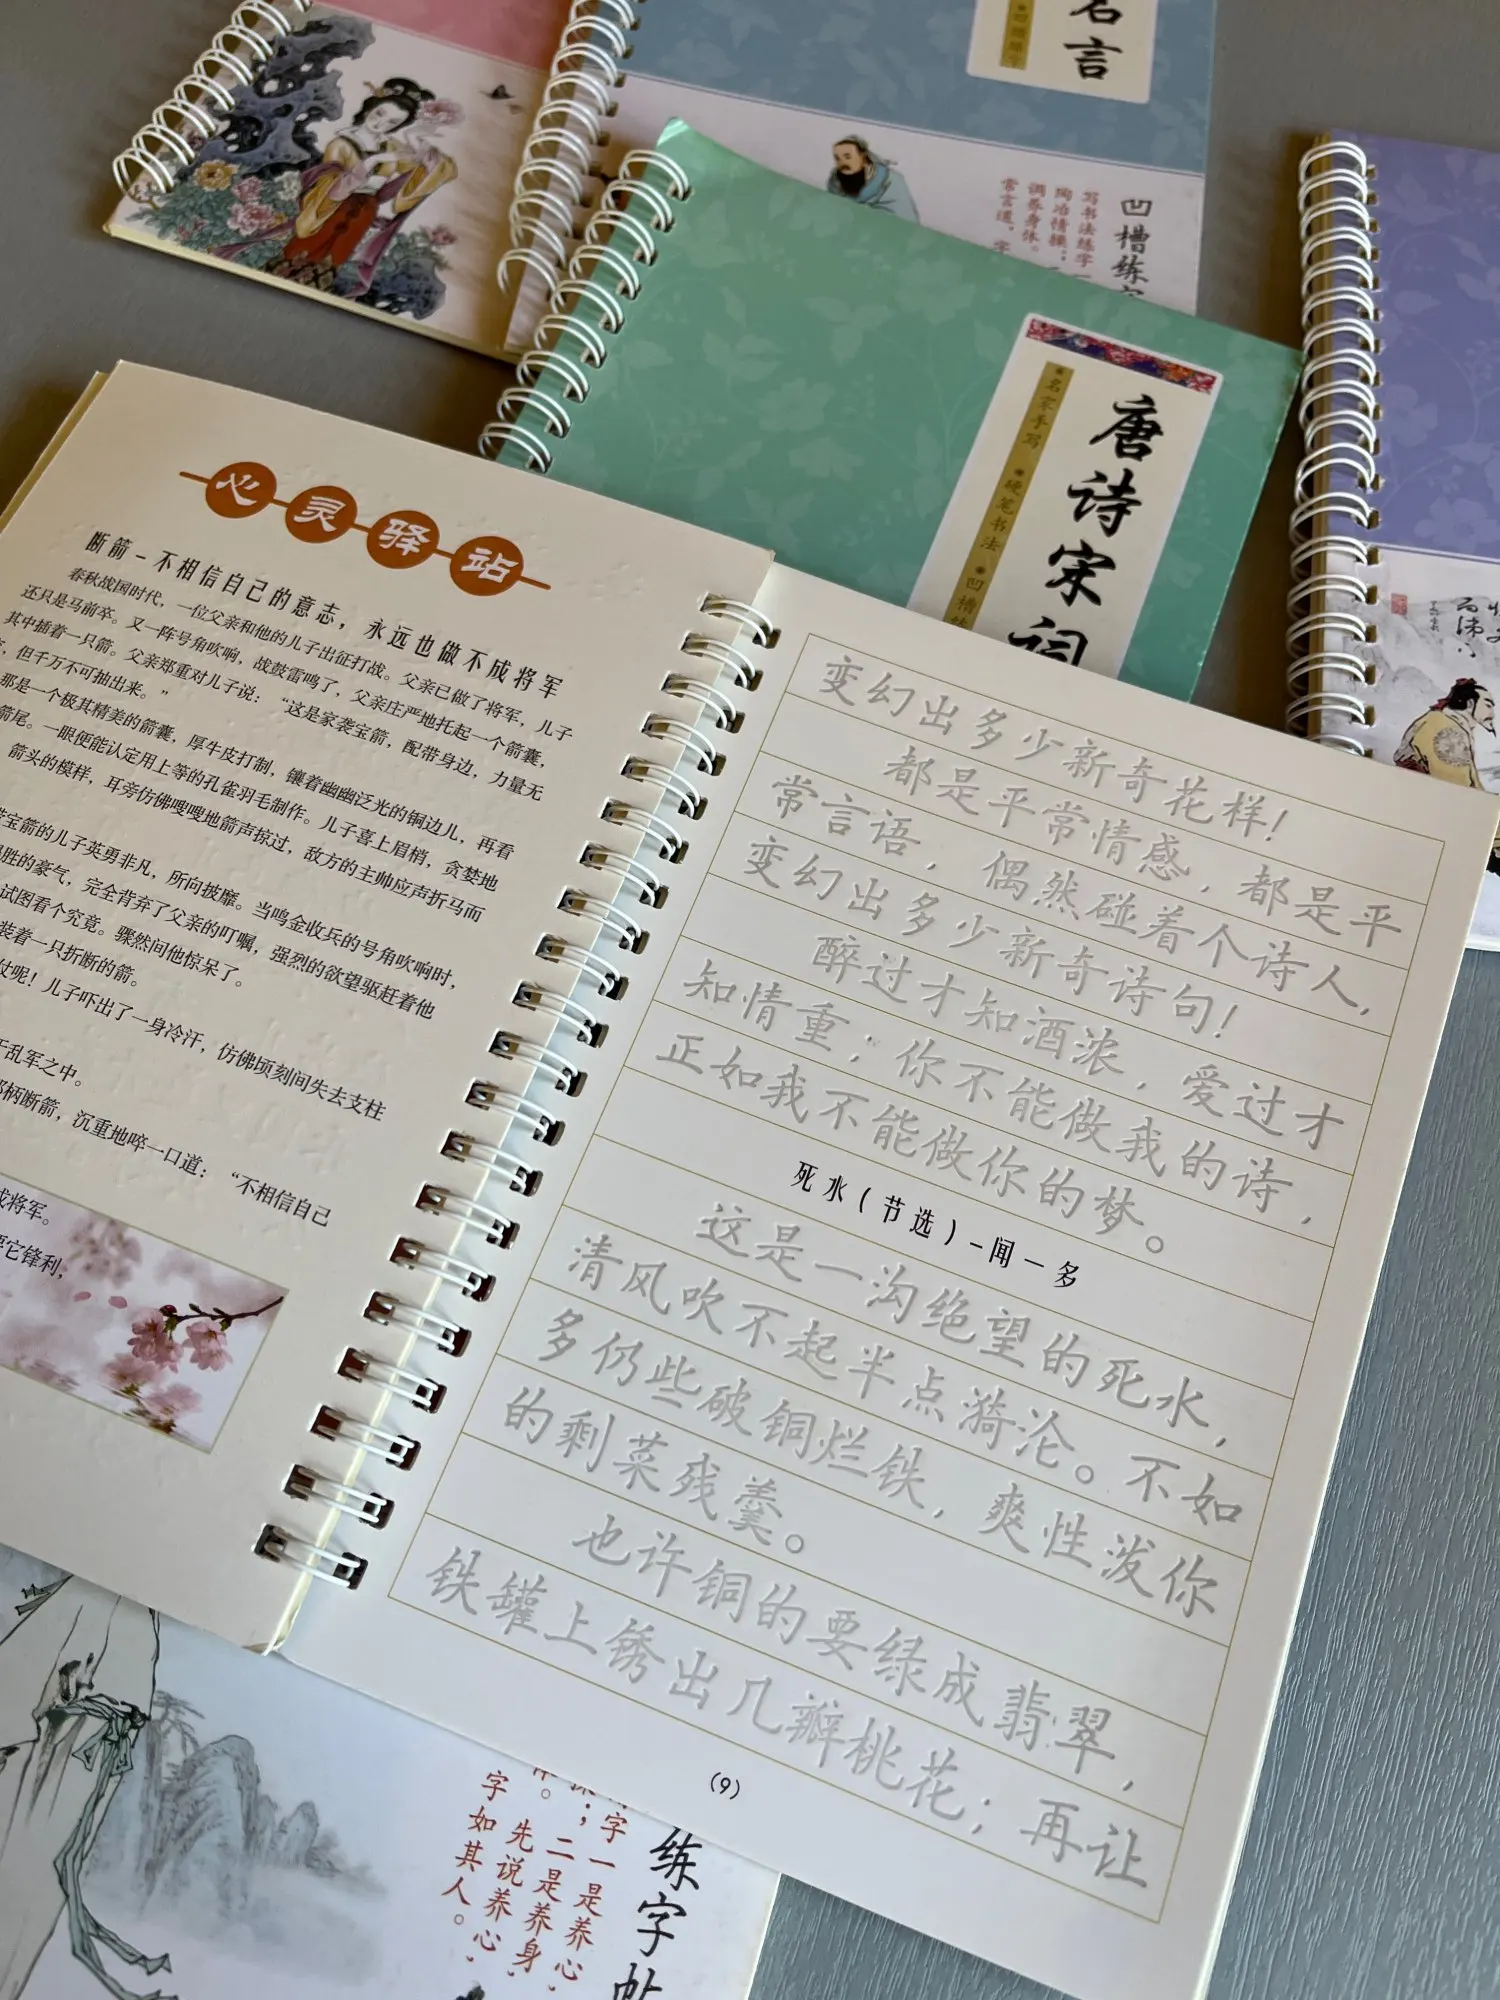 名言
凹槽练字
写书法练字一
陶冶情操；
调养身体。
常言道，字
唐诗宋词
●名家手写 ●硬笔书法 ●凹槽
心灵驿站
断箭-不相信自己的意志，永远也做不成将军
春秋战国时代，一位父亲和他的儿子出征打战。父亲已做了将军，儿子
还只是马前卒。又一阵号角吹响，战鼓雷鸣了，父亲庄严地托起一个箭囊，
其中插着一只箭。父亲郑重对儿子说：“这是家袭宝箭，配带身边，力量无
，但千万不可抽出来。”
那是一个极其精美的箭囊，厚牛皮打制，镶着幽幽泛光的铜边儿，再看
箭尾。一眼便能认定用上等的孔雀羽毛制作。儿子喜上眉梢，贪婪地
箭头的模样，耳旁仿佛嗖嗖地箭声掠过，敌方的主帅应声折马而
宝箭的儿子英勇非凡，所向披靡。当鸣金收兵的号角吹响时，
胜的豪气，完全背弃了父亲的叮嘱，强烈的欲望驱赶着他
试图看个究竟。骤然间他惊呆了。
装着一只折断的箭。
仗呢！儿子吓出了一身冷汗，仿佛顷刻间失去支柱
于乱军之中。
柄断箭，沉重地啐一口道：“不相信自己
成将军。
它锋利，
变幻出多少新奇花样！
都是平常情感，都是平
常言语，偶然碰着个诗人，
变幻出多少新奇诗句！
醉过才知酒浓，爱过才
知情重；你不能做我的诗，
正如我不能做你的梦。
死水（节选）-闻一多
这是一沟绝望的死水，
清风吹不起半点漪沦。不如
多仍些破铜烂铁，爽性泼你
的剩菜残羹。
也许铜的要绿成翡翠，
铁罐上锈出几瓣桃花；再让
（9）
练字帖
字一是养心，
；二是养身
。先说养心，
字如其人。